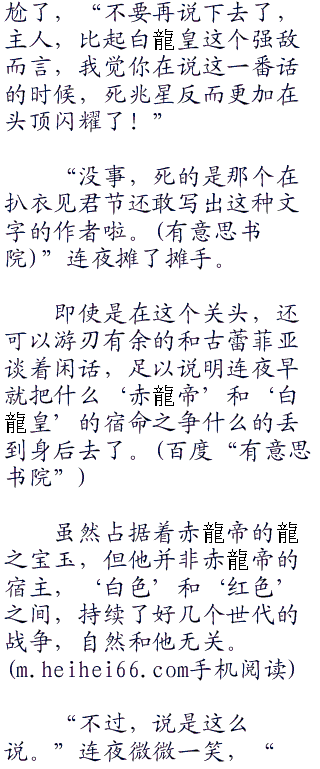 尬了，“不要再说下去了，
主人，比起白龍皇这个强敌
而言，我觉你在说这一番话
的时候，死兆星反而更加在
头顶闪耀了！”
“没事，死的是那个在
扒衣见君节还敢写出这种文
字的作者啦。(有意思书
院)”连夜摊了摊手。
即使是在这个关头，还
可以游刃有余的和古蕾菲亚
谈着闲话，足以说明连夜早
就把什么‘赤龍帝’和‘白
龍皇’的宿命之争什么的丢
到身后去了。(百度“有意思
书院”)
虽然占据着赤龍帝的龍
之宝玉，但他并非赤龍帝的
宿主，‘白色’和‘红色’
之间，持续了好几个世代的
战争，自然和他无关。
(m.heihei66.com手机阅读)
“不过，说是这么
说。”连夜微微一笑，“